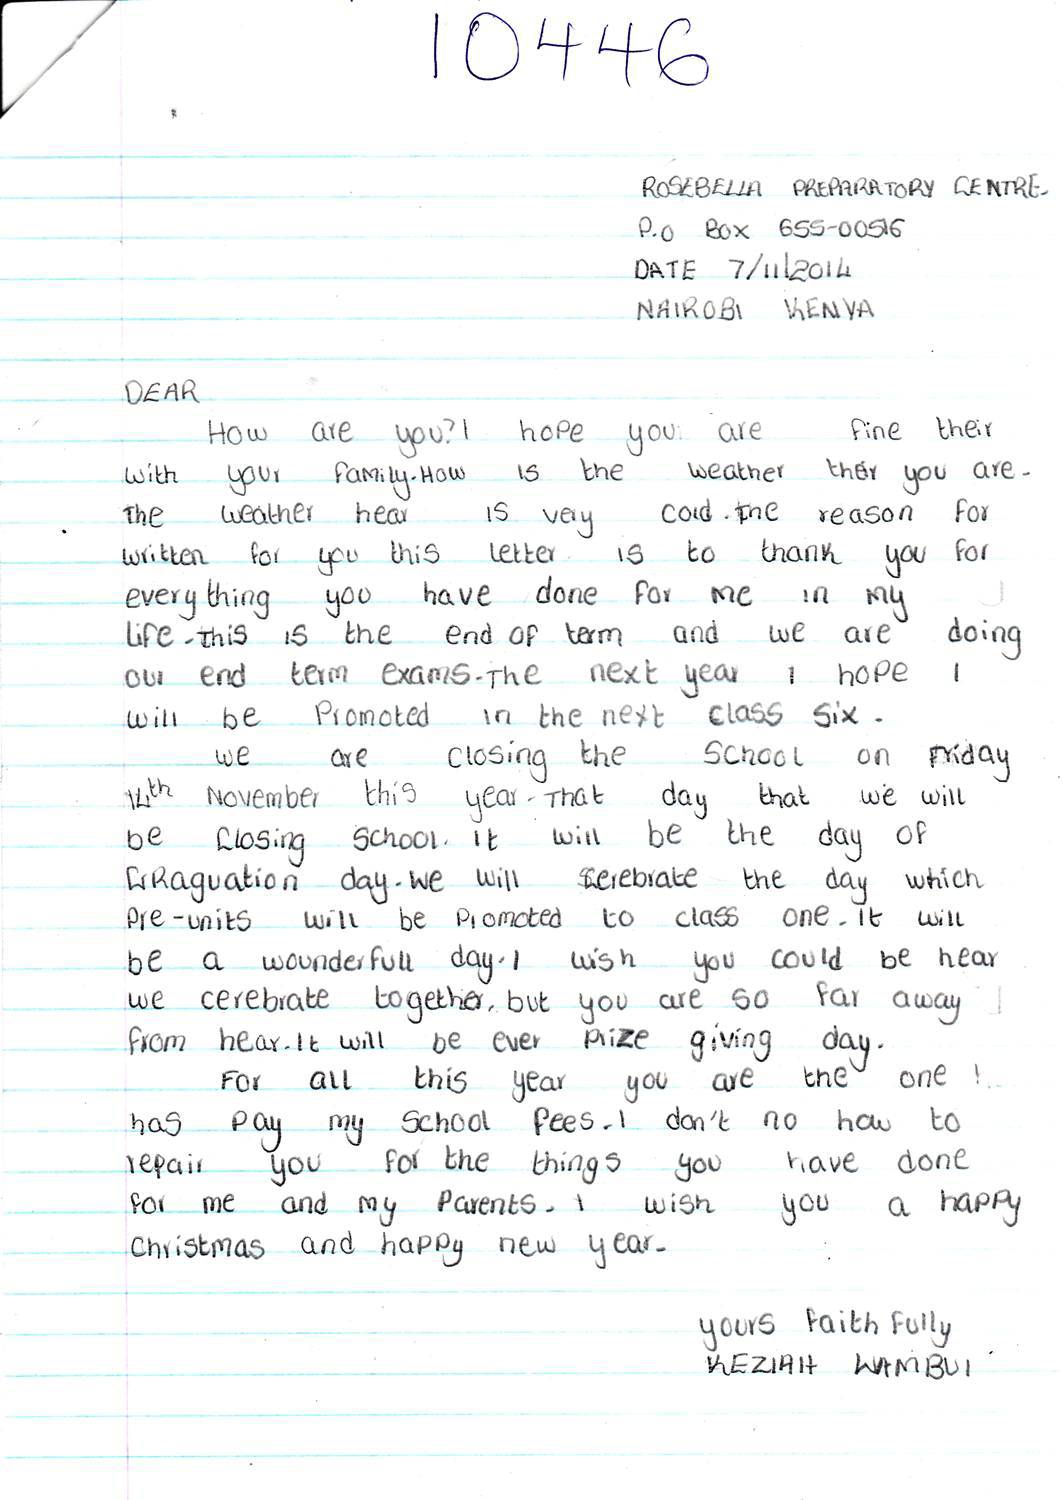 10446
ROSEBELLA PREPARATORY CENTRE.
P.O BOX 655-00516
DATE 7/11/2014
NAIROBI KENYA
DEAR
How are you? I hope you are fine their
with your family. How is the weather ther you are.
The weather hear is very cold. The reason for
written for you this letter is to thank you for
everything you have done for me in my
life. This is the end of term and we are doing
our end term exams. The next year I hope I
will be promoted in the next class six.
We are closing the school on Friday
14th November this year. That day that we will
be closing school. It will be the day of
GRaguation day. We will cerebrate the day which
pre-units will be promoted to class one. It will
be a wounderfull day. I wish you could be hear
we cerebrate together, but you are so far away
from hear. It will be ever prize giving day.
For all this year you are the one !
has pay my school fees. I don't no how to
repair you for the things you have done
for me and my parents. I wish you a happy
Christmas and happy new year.
yours faithfully
KEZIAH WAMBUI